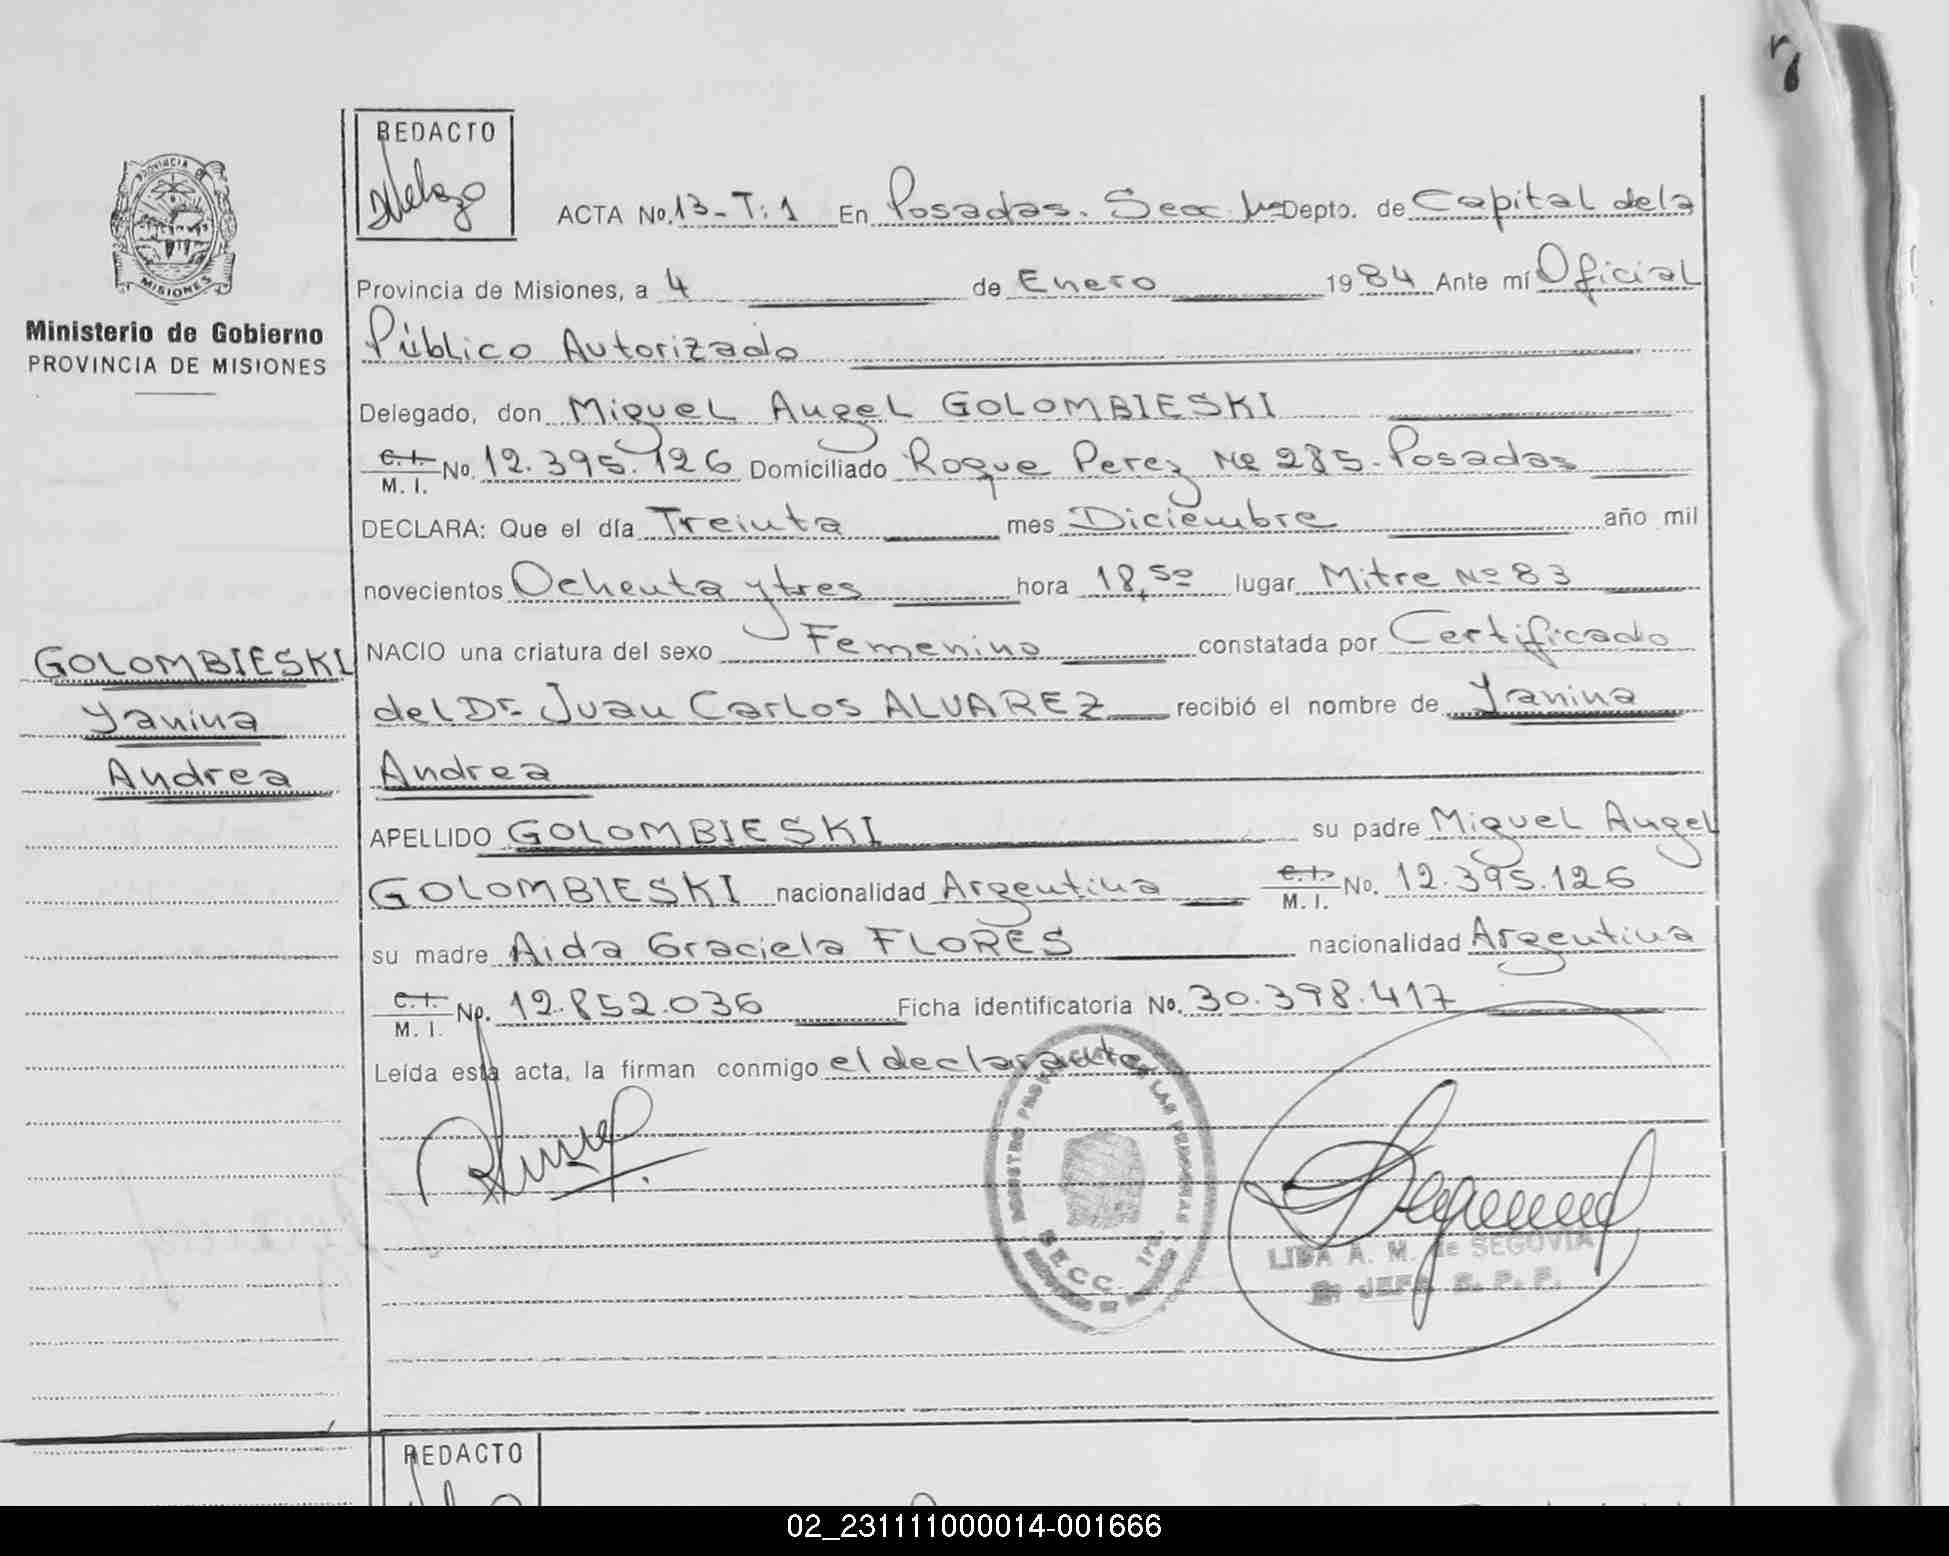 REDACTO
ACTA No. 13 - T: 1 En Posadas. Secc. 1ra Depto. de Capital de la
PROVINCIA DE
MISIONES
Provincia de Misiones, a 4 de Enero 1984 Ante mí Oficial
Ministerio de Gobierno
PROVINCIA DE MISIONES
Público Autorizado
Delegado, don Miguel Angel GOLOMBIESKI
C. I.
M. I. No. 12.395.126 Domiciliado Roque Perez Nº 285 - Posadas
DECLARA: Que el día Treinta mes Diciembre año mil
novecientos Ochenta y tres hora 18,50 lugar Mitre Nº 83
NACIO una criatura del sexo Femenino constatada por Certificado
GOLOMBIESKI
Yanina
Andrea
del Dr. Juan Carlos ALVAREZ recibió el nombre de Yanina
Andrea
APELLIDO GOLOMBIESKI su padre Miguel Angel
GOLOMBIESKI nacionalidad Argentina C. I. M. I. No. 12.395.126
su madre Aida Graciela FLORES nacionalidad Argentina
C. I.
M. I. No. 12.852.036 Ficha identificatoria No. 30.398.417
Leída esta acta, la firman conmigo el declarante
REGISTRO DE LAS PERSONAS
SECC. 1ra.
LIDA A. M. de SEGOVIA
JEFA
REDACTO
02_231111000014-001666